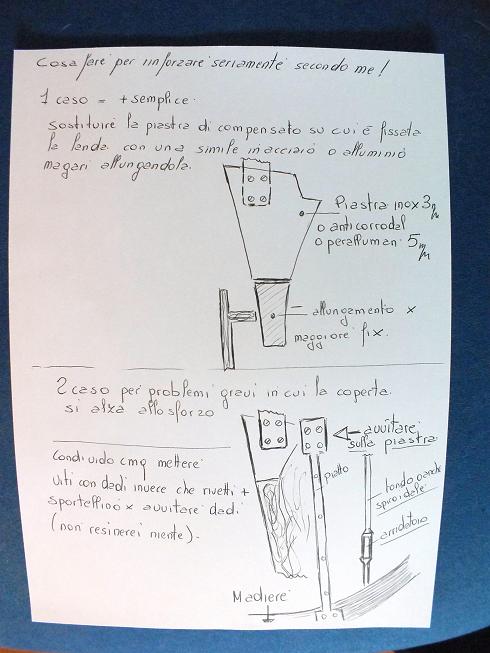 Cosa fare per rinforzare seriamente secondo me!
1 caso = + semplice.
sostituire la piastra di compensato su cui è fissata
la landa con una simile in acciaio o alluminio
magari allungandola.
Piastra inox 3 m/m
o anticorrodal
o peralluman. 5 m/m
allungamento x
maggiore fix.
2 caso per problemi gravi in cui la coperta
si alza allo sforzo
avvitare
sulla piastra
piatto
tondo anche
spiroidale
arridatoio
Condivido cmq mettere
viti con dadi invece che rivetti +
sportellino x avvitare dadi
(non resinerei niente).
Madiere